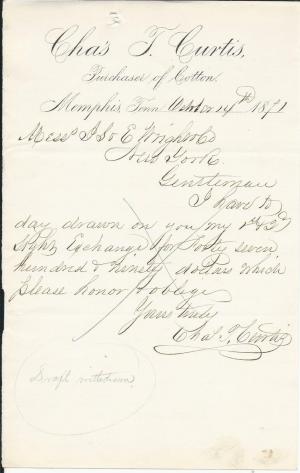 Chas. T. Curtis,
Purchaser of Cotton.
Memphis, Tenn. October 14th 1871
Messrs & E Wright & Co
New York
Gentlemen
I have to
day drawn on you my 1st & 2d
Sight Exchange for Forty seven
hundred & ninety dollars which
please honor & oblige
Yours truly
Chas. T. Curtis
Draft withdrawn